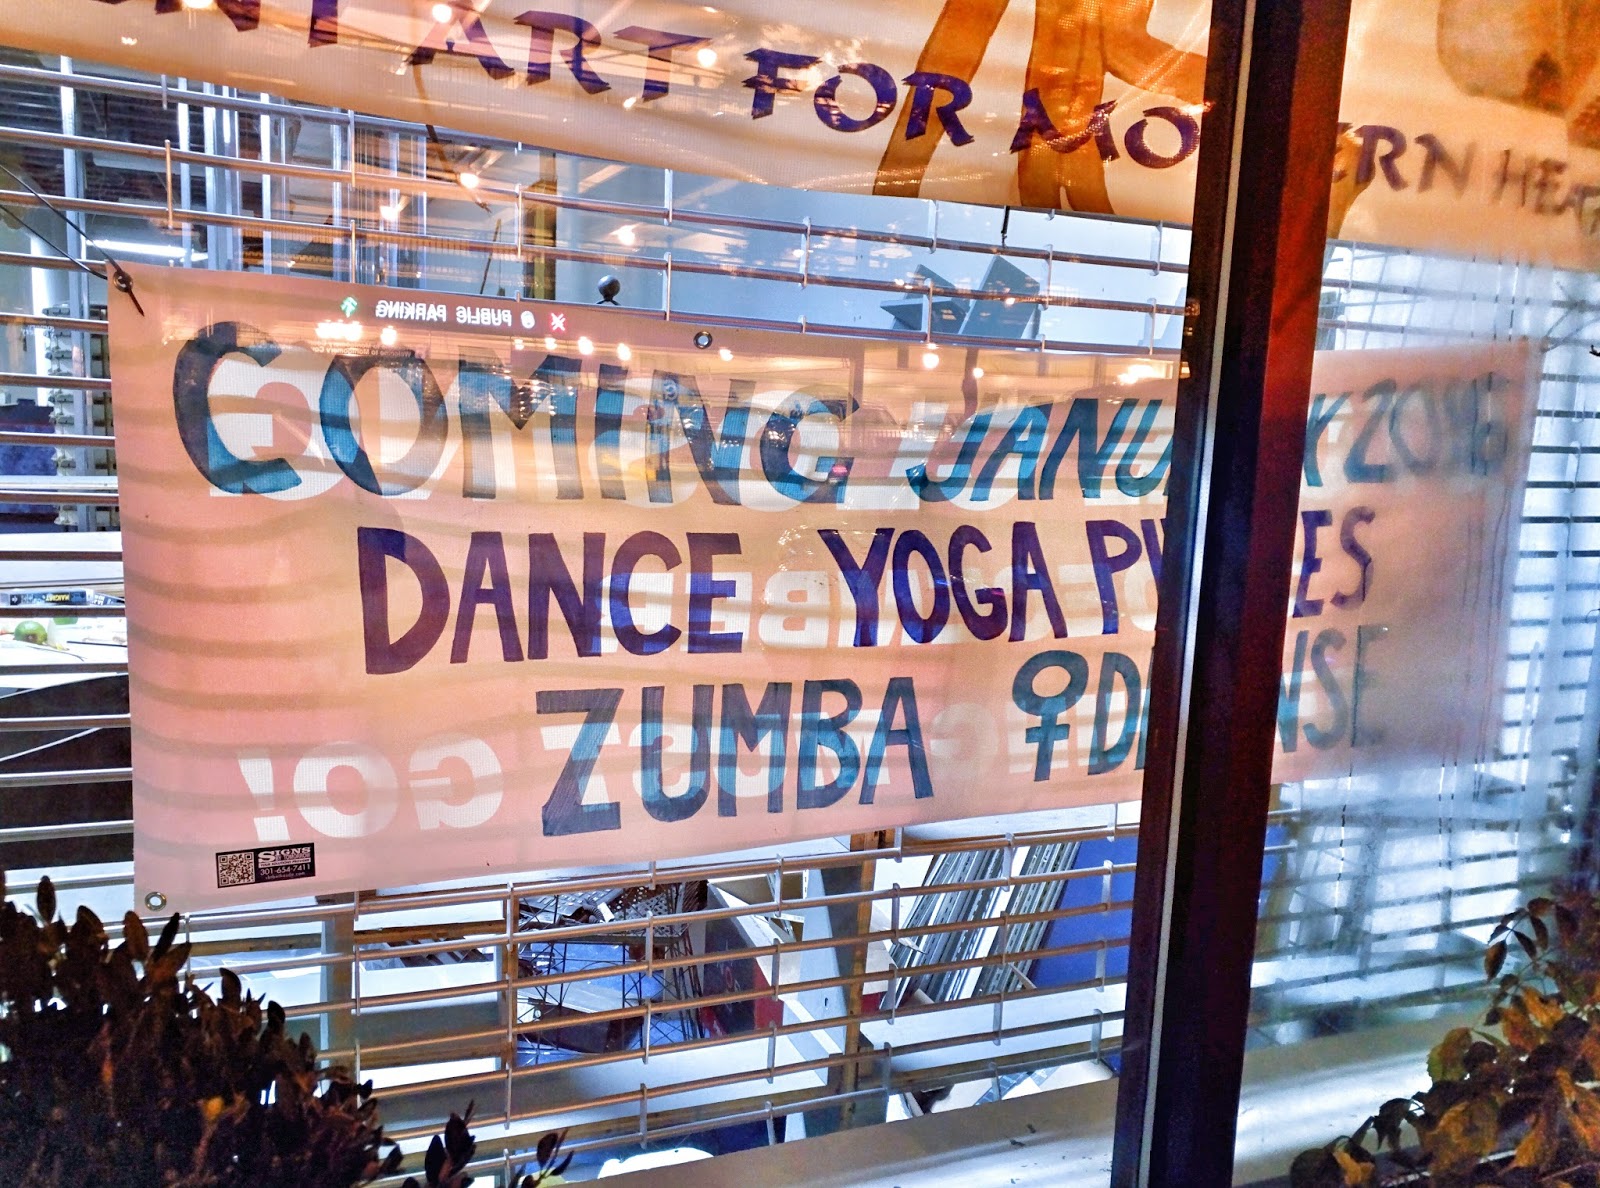 ART FOR MO ERN HEA
PUBLIC PARKING
COMING JANU Y 2016
DANCE YOGA PI ES
ZUMBA ♀ D NSE
GO!
SIGNS
301-654-7411